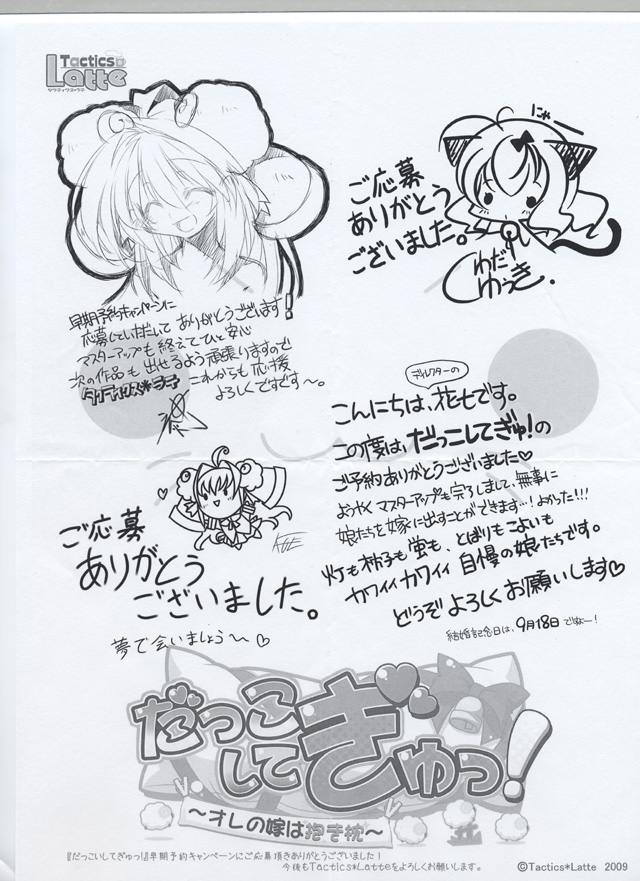 Tactics
Latte
タクティクス・ラテ
にゃー
ご応募
ありがとう
ございました。
わだ
ゆうき.
早期予約キャンペーンに
応募していただいて ありがとうございます!
マスターアップも終えてひと安心
次の作品も出せるよう頑張りますので
タクティクス*ラテ これからも応援
よろしくですです〜。
ディレクターの
こんにちは、花七です。
この度は、だっこしてぎゅ!の
ご予約ありがとうございました♡
ようやくマスターアップも完了しまして、無事に
娘たちを嫁に出すことができます…!よかった!!!
灯も柚子も蛍も、とばりもこよいも
カワイイカワイイ 自慢の娘たちです。
どうぞ よろしくお願いします♡
結婚記念日は、9月18日ですよー!
ご応募
ありがとう
ございました。
夢で会いましょう〜♡
だっこ
して
ぎゅっ!
〜オレの嫁は抱き枕〜
『だっこいしてぎゅっ!』早期予約キャンペーンにご応募頂きありがとうございました!
今後もTactics*Latteをよろしくお願いします。
©Tactics*Latte 2009